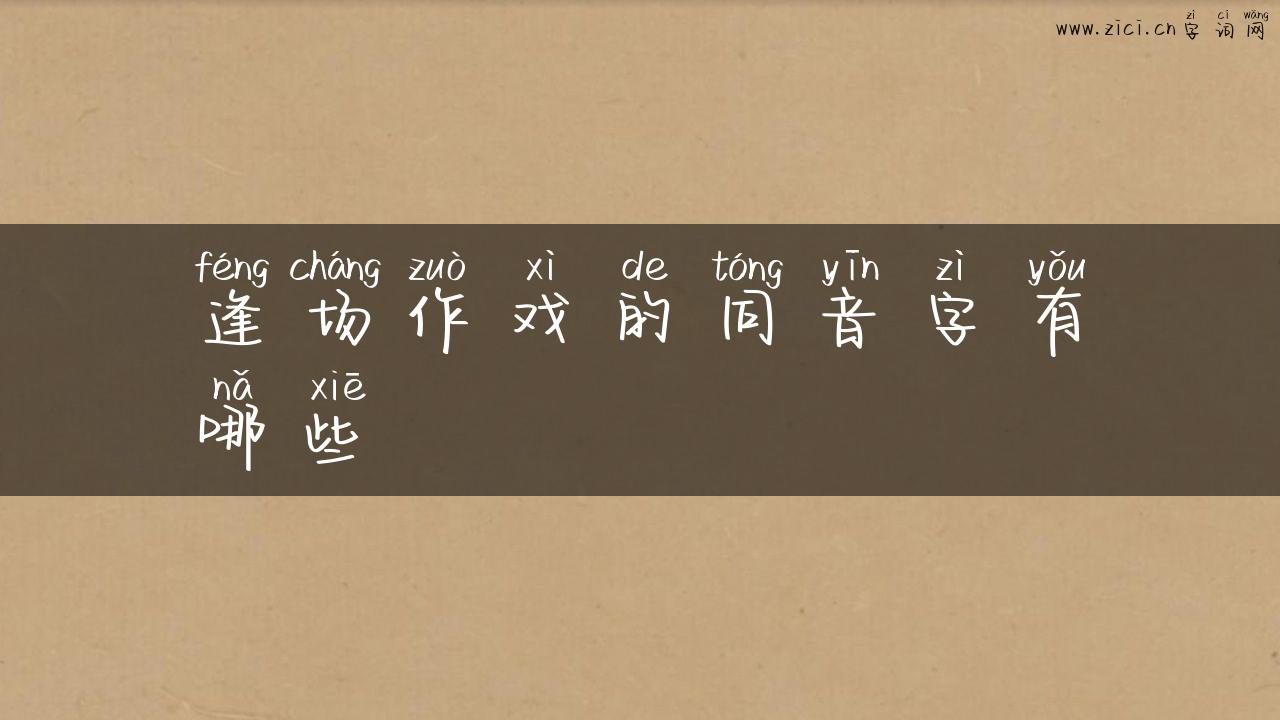 zì cí wǎng
www.zici.cn 字 词 网
féng cháng zuò xì de tóng yīn zì yǒu
逢 场 作 戏 的 同 音 字 有
nǎ xiē
哪 些